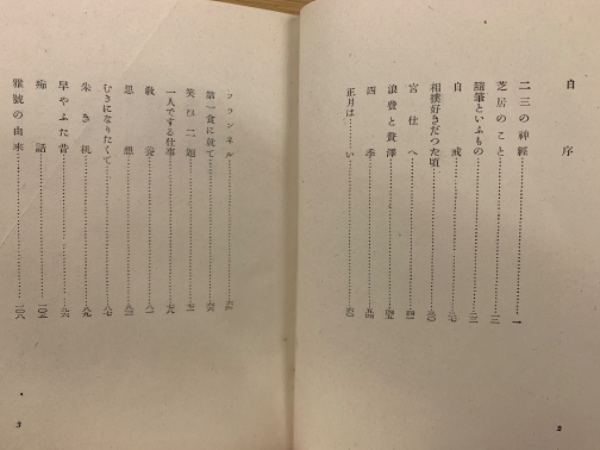 自序
二三の神経……一
芝居のこと……一三
随筆といふもの……二三
自戒……二七
相撲好きだつた頃……三〇
宮仕へ……四一
浪費と贅澤……四五
四季……五四
正月は……い……六〇
2
フランネル……六四
第一食に就て……六六
笑ひ二題……七二
一人でする仕事……七八
教養……八一
思想……八三
むきになりたくて……八七
朱き机……八九
早やふた昔……九六
痴話……一〇五
雅號の由来……一〇八
3